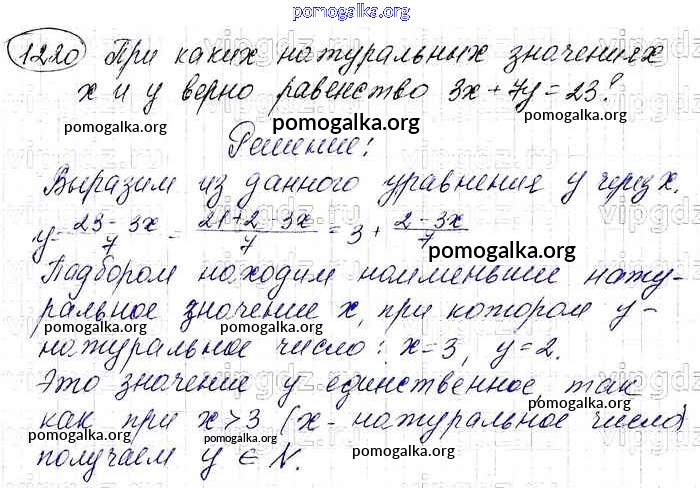 pomogalka.org
1220 При каких натуральных значениях
x и y верно равенство 3x + 7y = 23?
pomogalka.org pomogalka.org
Решение:
Выразим из данного уравнения y через x.
y = 23 - 3x / 7 = 21 + 2 - 3x / 7 = 3 + 2 - 3x / 7
pomogalka.org
Падбором находим наименьшие нату-
ральное значение x, при котором y -
pomogalka.org pomogalka.org
натуральное число: x = 3, y = 2.
Это значение y единственное так
как при x > 3 (x - натуральное число)
pomogalka.org pomogalka.org
получаем y ∈ N.